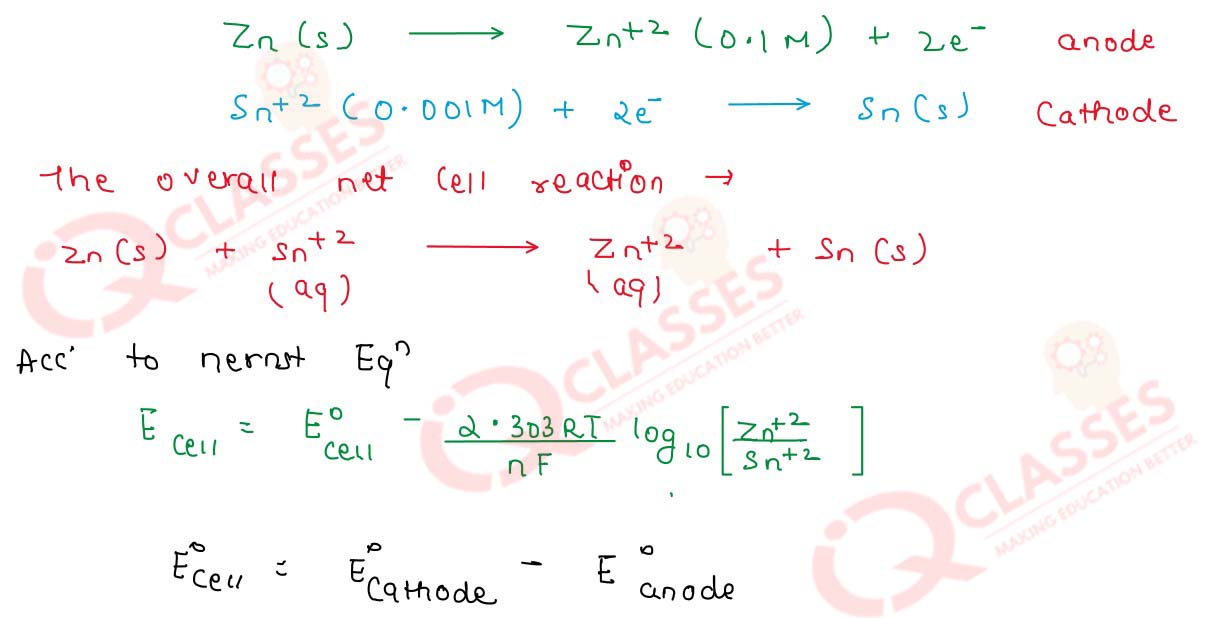 Zn (s) ⟶ Zn+2 (0.1 M) + 2e- anode
Sn+2 (0.001M) + 2e- ⟶ Sn (s) Cathode
The overall net Cell reaction →
Zn (s) + Sn+2 (aq) ⟶ Zn+2 (aq) + Sn (s)
Acc' to nernst Eqn
E cell = E° cell - 2.303RT / nF log10 [Zn+2 / Sn+2]
E° Cell = E° Cathode - E° anode
iQ CLASSES
MAKING EDUCATION BETTER
iQ CLASSES
MAKING EDUCATION BETTER
iQ CLASSES
MAKING EDUCATION BETTER